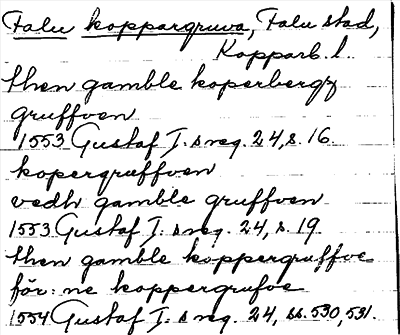 Falu koppargruva, Falu stad,
Kopparb. l.
then gamble koperbergz
gruffven
1553 Gustaf I:s reg. 24, s. 16.
kopergruffven
vedh gamble gruffven
1553 Gustaf I:s reg. 24, s. 19.
then gamble koppergruffve
för: ne koppergrufve
1554 Gustaf I:s reg. 24, ss. 530, 531.